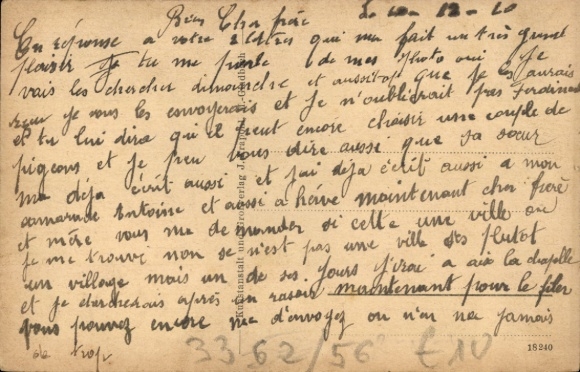 Bien Cher frère Le 10-12-20
En réponse a votre lettres qui ma fait un très grand
plaisir Tu me parle de mes Photo oui Je
vais les chercher dimanche et aussitôt que je les aurais
reçu je vous les envoyerais et je n'oublirait pas Ferdinand
et tu lui dira qu'il peut encore choisir une couple de
pigeons et je peu vous dire aussi que sa soeur
ma déja écrit aussi et jai déja écrit aussi a mon
camarade Antoine et aussi a maintenant cher frère
et mère vous me demander si cette une ville ou
je me trouve non se n'est pas une ville plutot
un village mais un de ses jours j'irai a aix la chapelle
et je chercherais après un rasoir maintenant pour le filer
vous pouvez encore me d'envoyez on n'en na jamais
de trop
3362/56 £10
18240